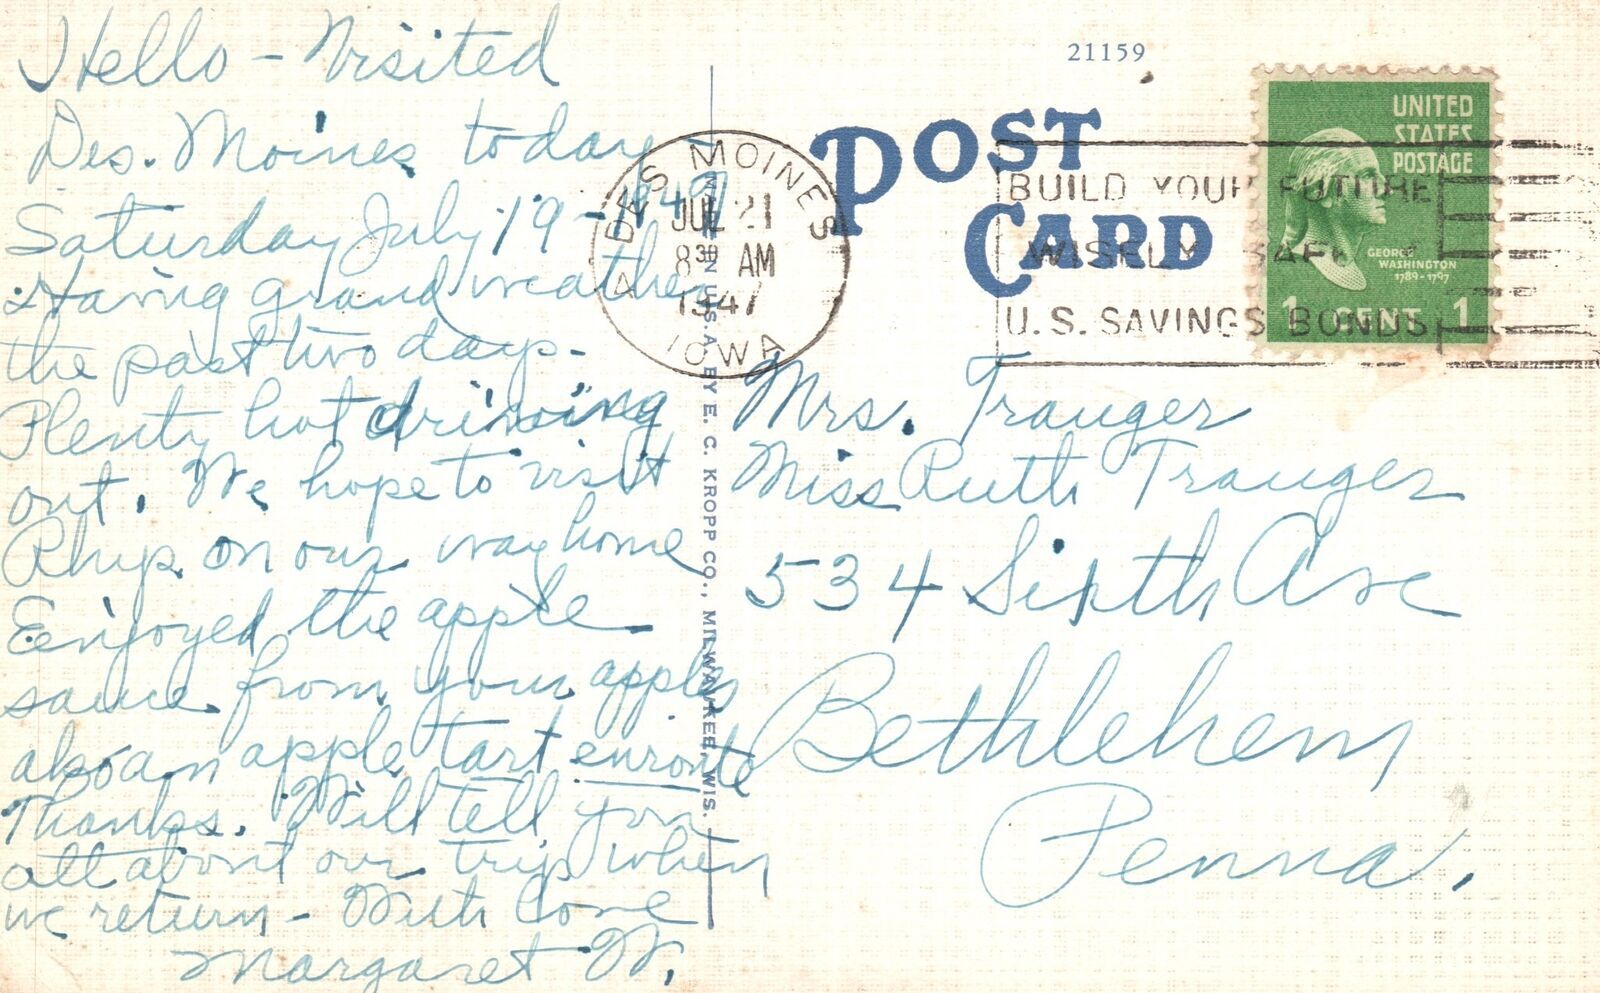 Hello - Visited
Des. Moines today
Saturday July 19 - 1947
Having grand weather
the past two days -
Plenty hot driving
out. We hope to visit
on our way home
Eenjoyed the apple
sauce from your apples
also an apple tart enroute
Thanks. Will tell you
all about our trip when
we return - With Love
Margaret W.
21159
POST
CARD
DES MOINES
JUL 21
8 30 AM
1947
IOWA
BUILD YOUR FUTURE
WISELY SAFELY
U.S. SAVINGS BONDS
UNITED
STATES
POSTAGE
GEORGE
WASHINGTON
1789-1797
1 CENT 1
Mrs. Trauger
Miss Ruth Trauger
534 Sixth Ave
Bethlehem
Penna.
IN U.S.A. BY E. C. KROPP CO., MILWAUKEE, WIS.